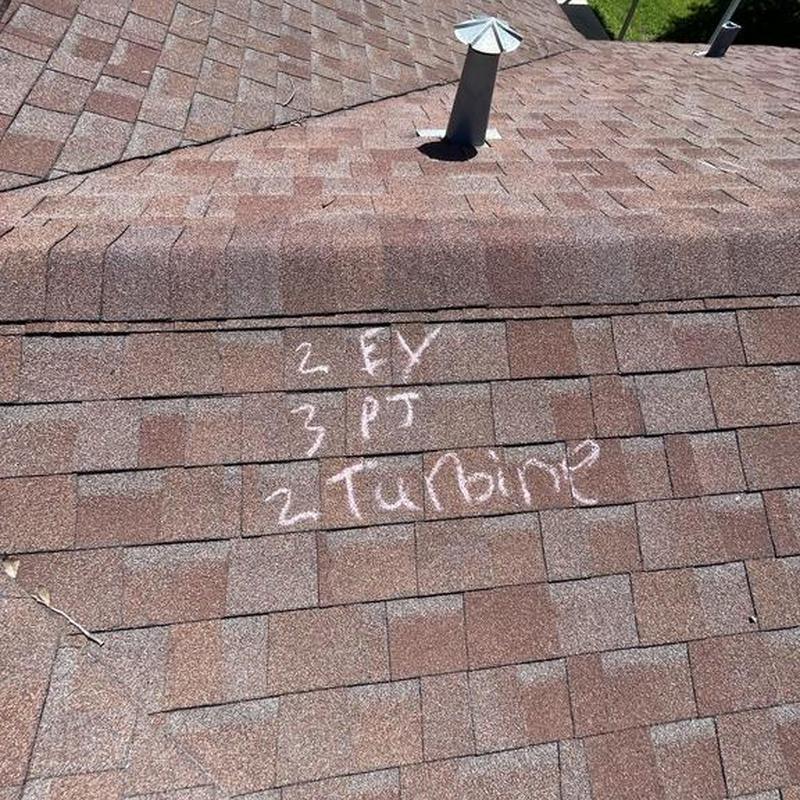 2 EY
3 PJ
2 Turbine